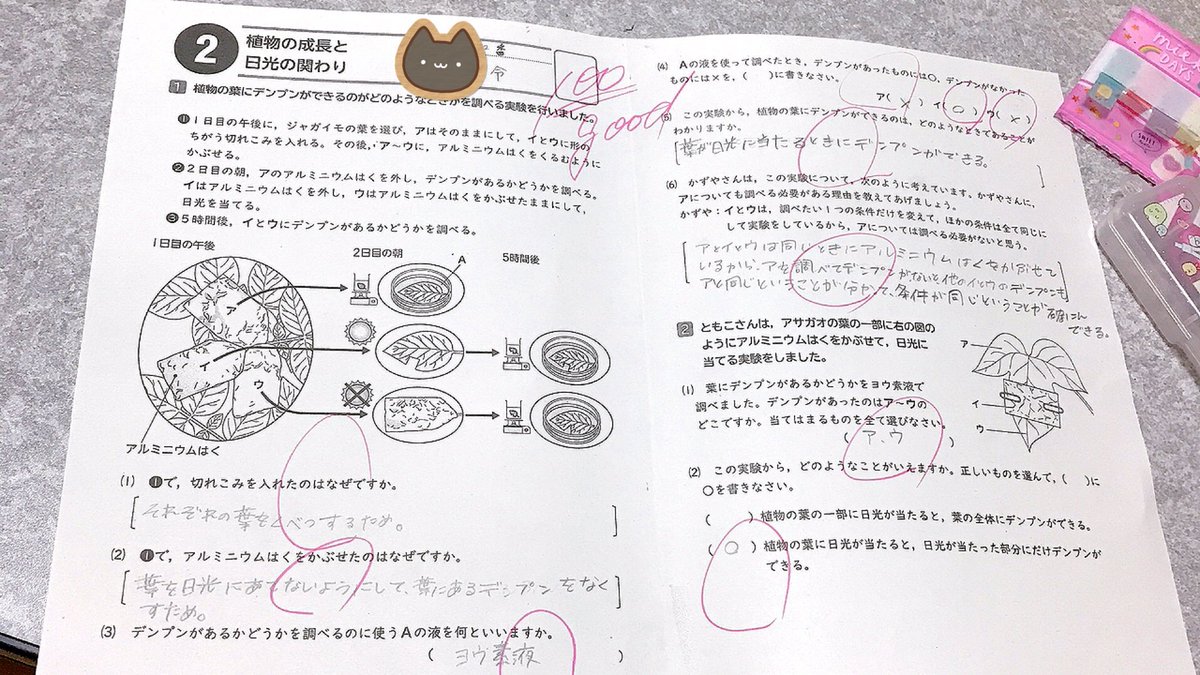 2
植物の成長と
日光の関わり
100
good
1 植物の葉にデンプンができるのがどのようなときかを調べる実験を行いました。
❶1日目の午後に，ジャガイモの葉を選び，アはそのままにして，イとウに形の
ちがう切れこみを入れる。その後，ア〜ウに，アルミニウムはくをくるむように
かぶせる。
❷2日目の朝，アのアルミニウムはくを外し，デンプンがあるかどうかを調べる。
イはアルミニウムはくを外し，ウはアルミニウムはくをかぶせたままにして，
日光を当てる。
❸5時間後，イとウにデンプンがあるかどうかを調べる。
1日目の午後
2日目の朝
A
5時間後
ア
イ
ウ
アルミニウムはく
(1) ❶で，切れこみを入れたのはなぜですか。
それぞれの葉をくべつするため。
(2) ❶で，アルミニウムはくをかぶせたのはなぜですか。
葉を日光にあてないようにして、葉にあるデンプンをなく
すため。
(3) デンプンがあるかどうかを調べるのに使うAの液を何といいますか。
( ヨウ素液 )
(4) Aの液を使って調べたとき，デンプンがあったものには○，デンプンがなかった
ものには×を，( )に書きなさい。
ア( × ) イ( ○ ) ウ( × )
(5) この実験から，植物の葉にデンプンができるのは，どのようなときであることが
わかりますか。
葉が日光に当たるときにデンプンができる。
(6) かずやさんは，この実験について，次のように考えています。かずやさんに，
アについても調べる必要がある理由を教えてあげましょう。
かずや：イとウは，調べたい1つの条件だけを変えて，ほかの条件は全て同じに
して実験をしているから，アについては調べる必要がないと思う。
アとイとウは同じときにアルミニウムはくをかぶせて
いるから、アを調べてデンプンがないと他のイとウのデンプンも
アと同じということが分かって、条件が同じということが確にん
できる。
2 ともこさんは，アサガオの葉の一部に右の図の
ようにアルミニウムはくをかぶせて，日光に
当てる実験をしました。
ア
イ
ウ
(1) 葉にデンプンがあるかどうかをヨウ素液で
調べました。デンプンがあったのはア〜ウの
どこですか。当てはまるものを全て選びなさい。
( ア、ウ )
(2) この実験から，どのようなことがいえますか。正しいものを選んで，( )に
○を書きなさい。
( )植物の葉の一部に日光が当たると，葉の全体にデンプンができる。
( ○ )植物の葉に日光が当たると，日光が当たった部分にだけデンプンが
できる。
DAYS